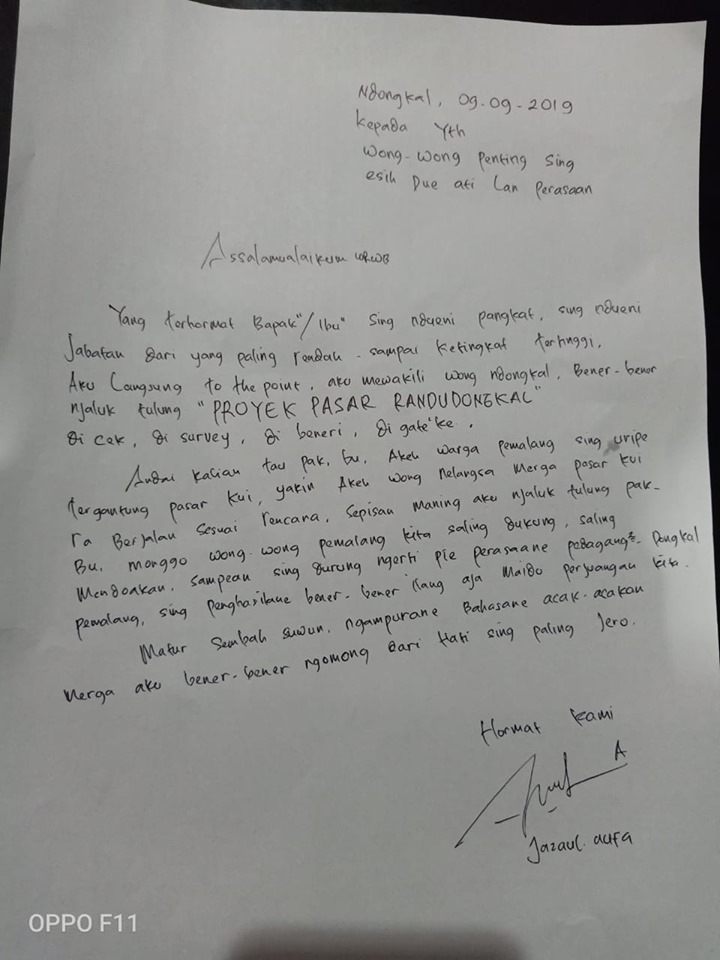 Ndongkal, 09-09-2019
Kepada Yth
Wong-wong penting sing
esih Due ati Lan perasaan
Assalamualaikum WRWB
Yang terhormat Bapak"/Ibu" sing ndueni pangkat, sing ndueni
Jabatan dari yang paling rendah - sampai ketingkat tertinggi.
Aku Langsung to the point, aku mewakili wong ndongkal, Bener-bener
njaluk tulung "PROYEK PASAR RANDUDONGKAL"
di cek, di survey, di beneri, di gate'ke.
Andai kalian tau pak, bu, Akeh warga pemalang sing uripe
tergantung pasar kui, yakin Akeh wong nelangsa Merga pasar kui
ra Berjalan sesuai rencana, sepisan maning aku njaluk tulung pak-
Bu, monggo wong-wong pemalang kita saling dukung, saling
Mendoakan, sampean sing durung ngerti pie perasaane pedagang² Dongkal
pemalang, sing penghasilane bener-bener ilang aja Maido perjuangan kita.
Matur Sembah suwun, ngampurane Bahasane acak-acakan
Merga aku bener-bener ngomong dari Hati sing paling Jero.
Hormat Kami
A
Jazaul. aufa
OPPO F11